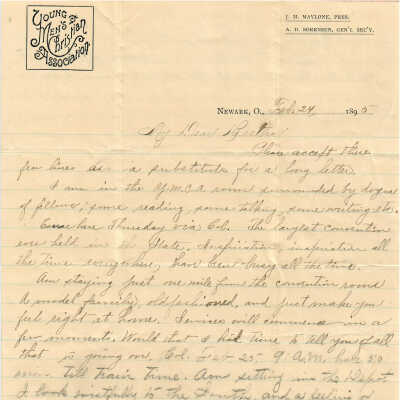 YOUNG MEN'S Christian ASSOCIATION
J. H. WAYLONE, PRES.
A. D. SORENSEN, GEN'L SEC'Y.
NEWARK, O., Feb. 24, 1895
My Dear Brother
Please accept these
few lines as a substitute for a long letter.
I am in the Y.M.C.A room surrounded by dozens
of fellows, some reading, some talking, some writing etc.
Came here Thursday via Col. The largest convention
ever held in the State. Inspiration, inspiration all
the time everywhere, have been busy all the time.
Am staying just one mile from the convention rooms
A model family, old fashioned, and just make you
feel right at home. Services will commence in a
few moments. Would that I had time to tell you of all
that is going on. Col. Feb 25- 9 A.M. have 50
min. till train time. Am setting in the Depot
I look wistfully to the South, and as